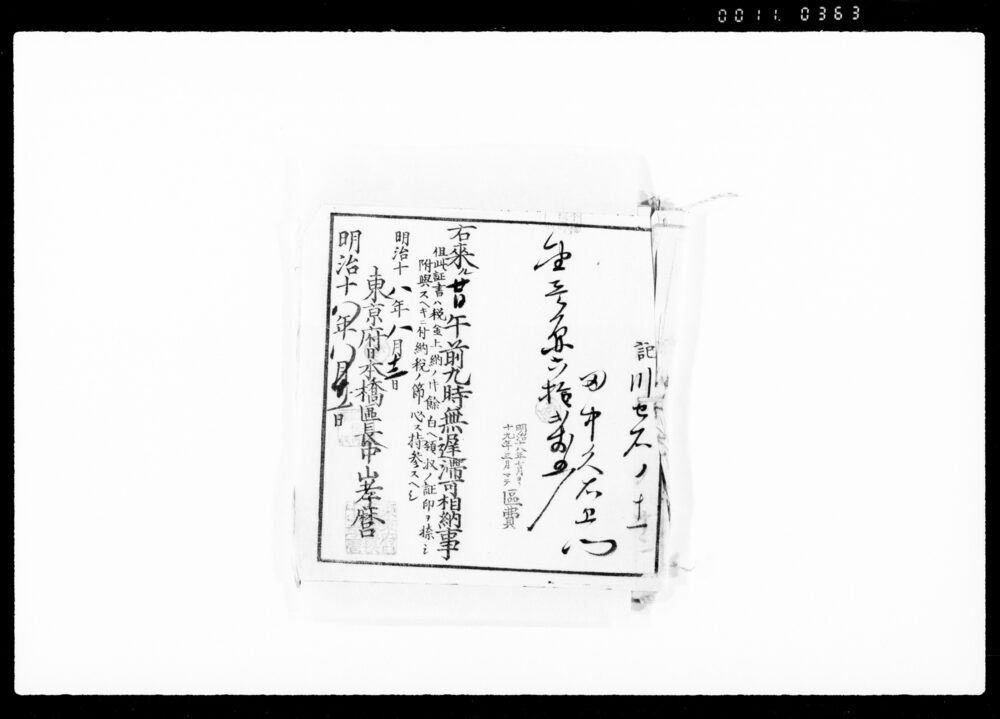 0011. 0363
記 川セ石ノ十一
田中久右衛門
金壱円六拾
明治十八年七月ヨリ
十九年三月マテ
區費
右來ル廿日午前九時無遅滯可相納事
但此証書ハ税金上納ノ上餘白ヘ領収ノ証印ヲ捺シ
附與スヘキニ付納税ノ節必ス持参スヘシ
明治十八年八月十二日
東京府日本橋區長中山孝麿
明治十八年八月廿一日